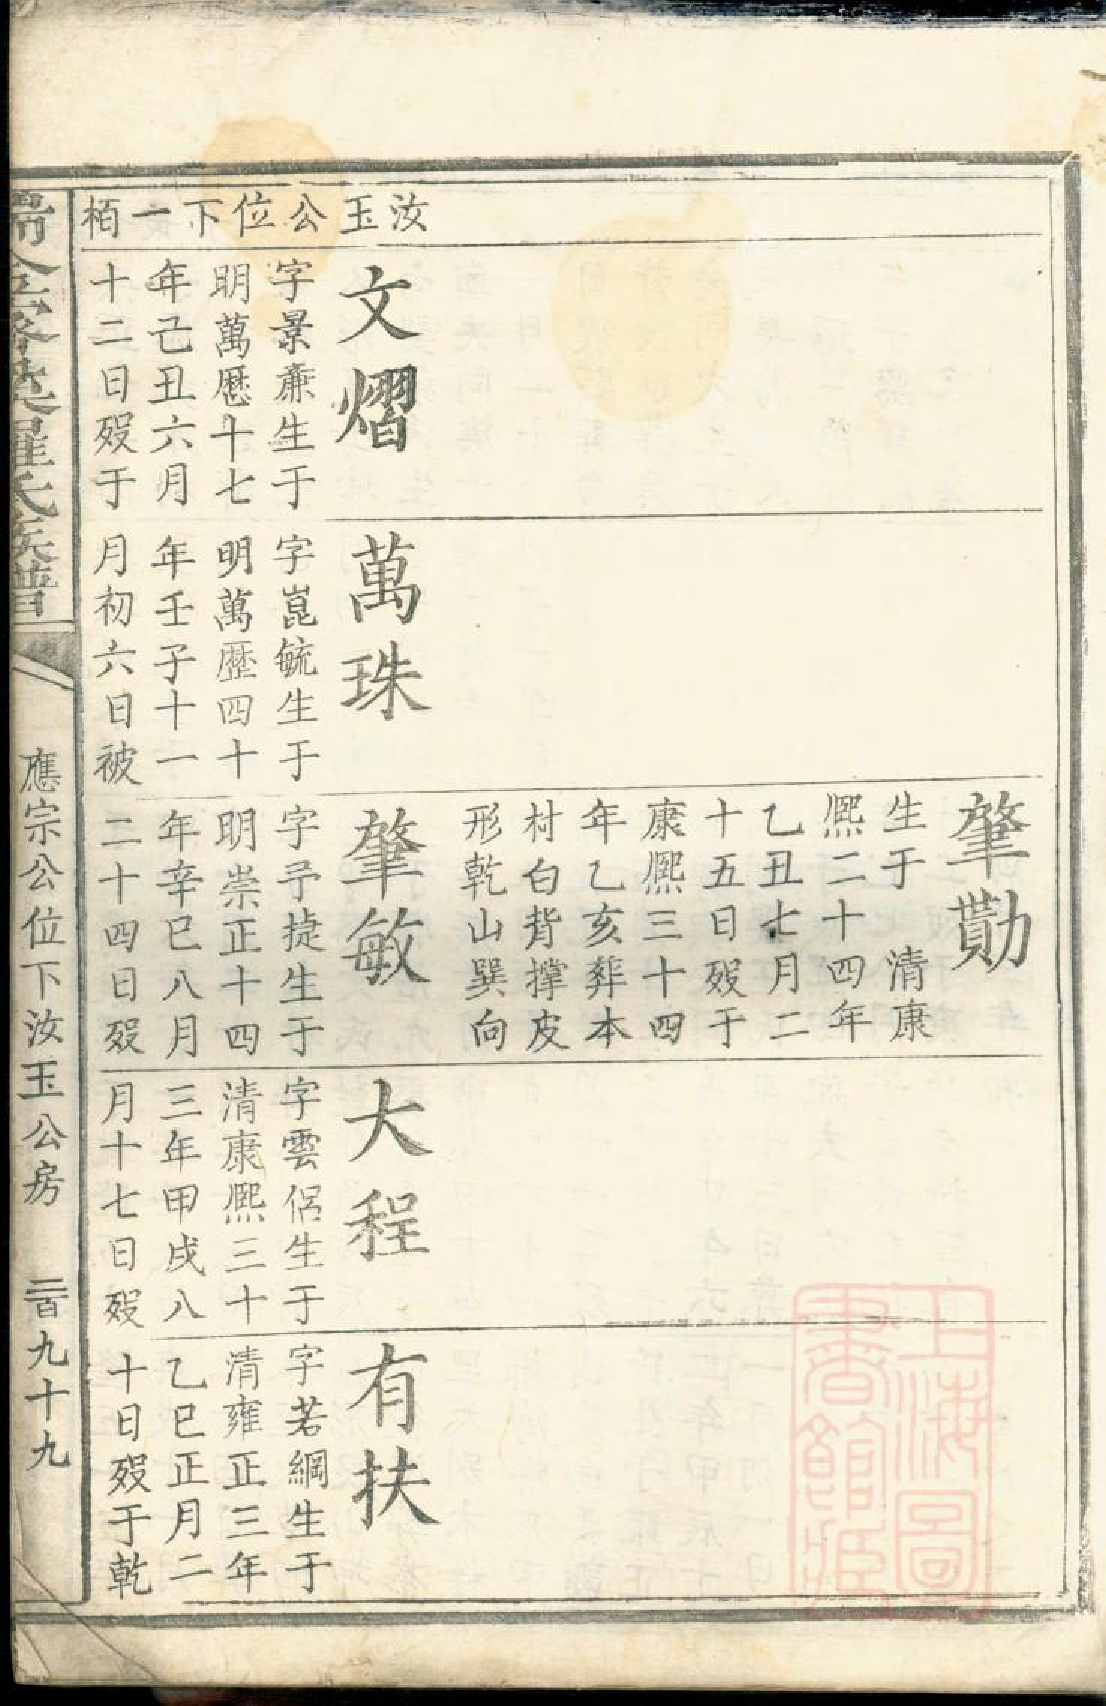 汝玉公位下一栢
文熠
字景亷生于
明萬厯十七
年己丑六月
十二日歿于
萬珠
字崑毓生于
明萬歷四十
年壬子十一
月初六日被
肇勩
生于 清康
熈二十四年
乙丑七月二
十五日歿于
康熈三十四
年乙亥葬本
村白背撑皮
形乾山巽向
肇敏
字予捷生于
明崇正十四
年辛巳八月
二十四日歿
大程
字雲侣生于
清康熈三十
三年甲戌八
月十七日歿
有扶
字若綱生于
清雍正三年
乙巳正月二
十日歿于乾
羅氏族譜
應宗公位下汝玉公房
二百九十九
上海圖書館藏